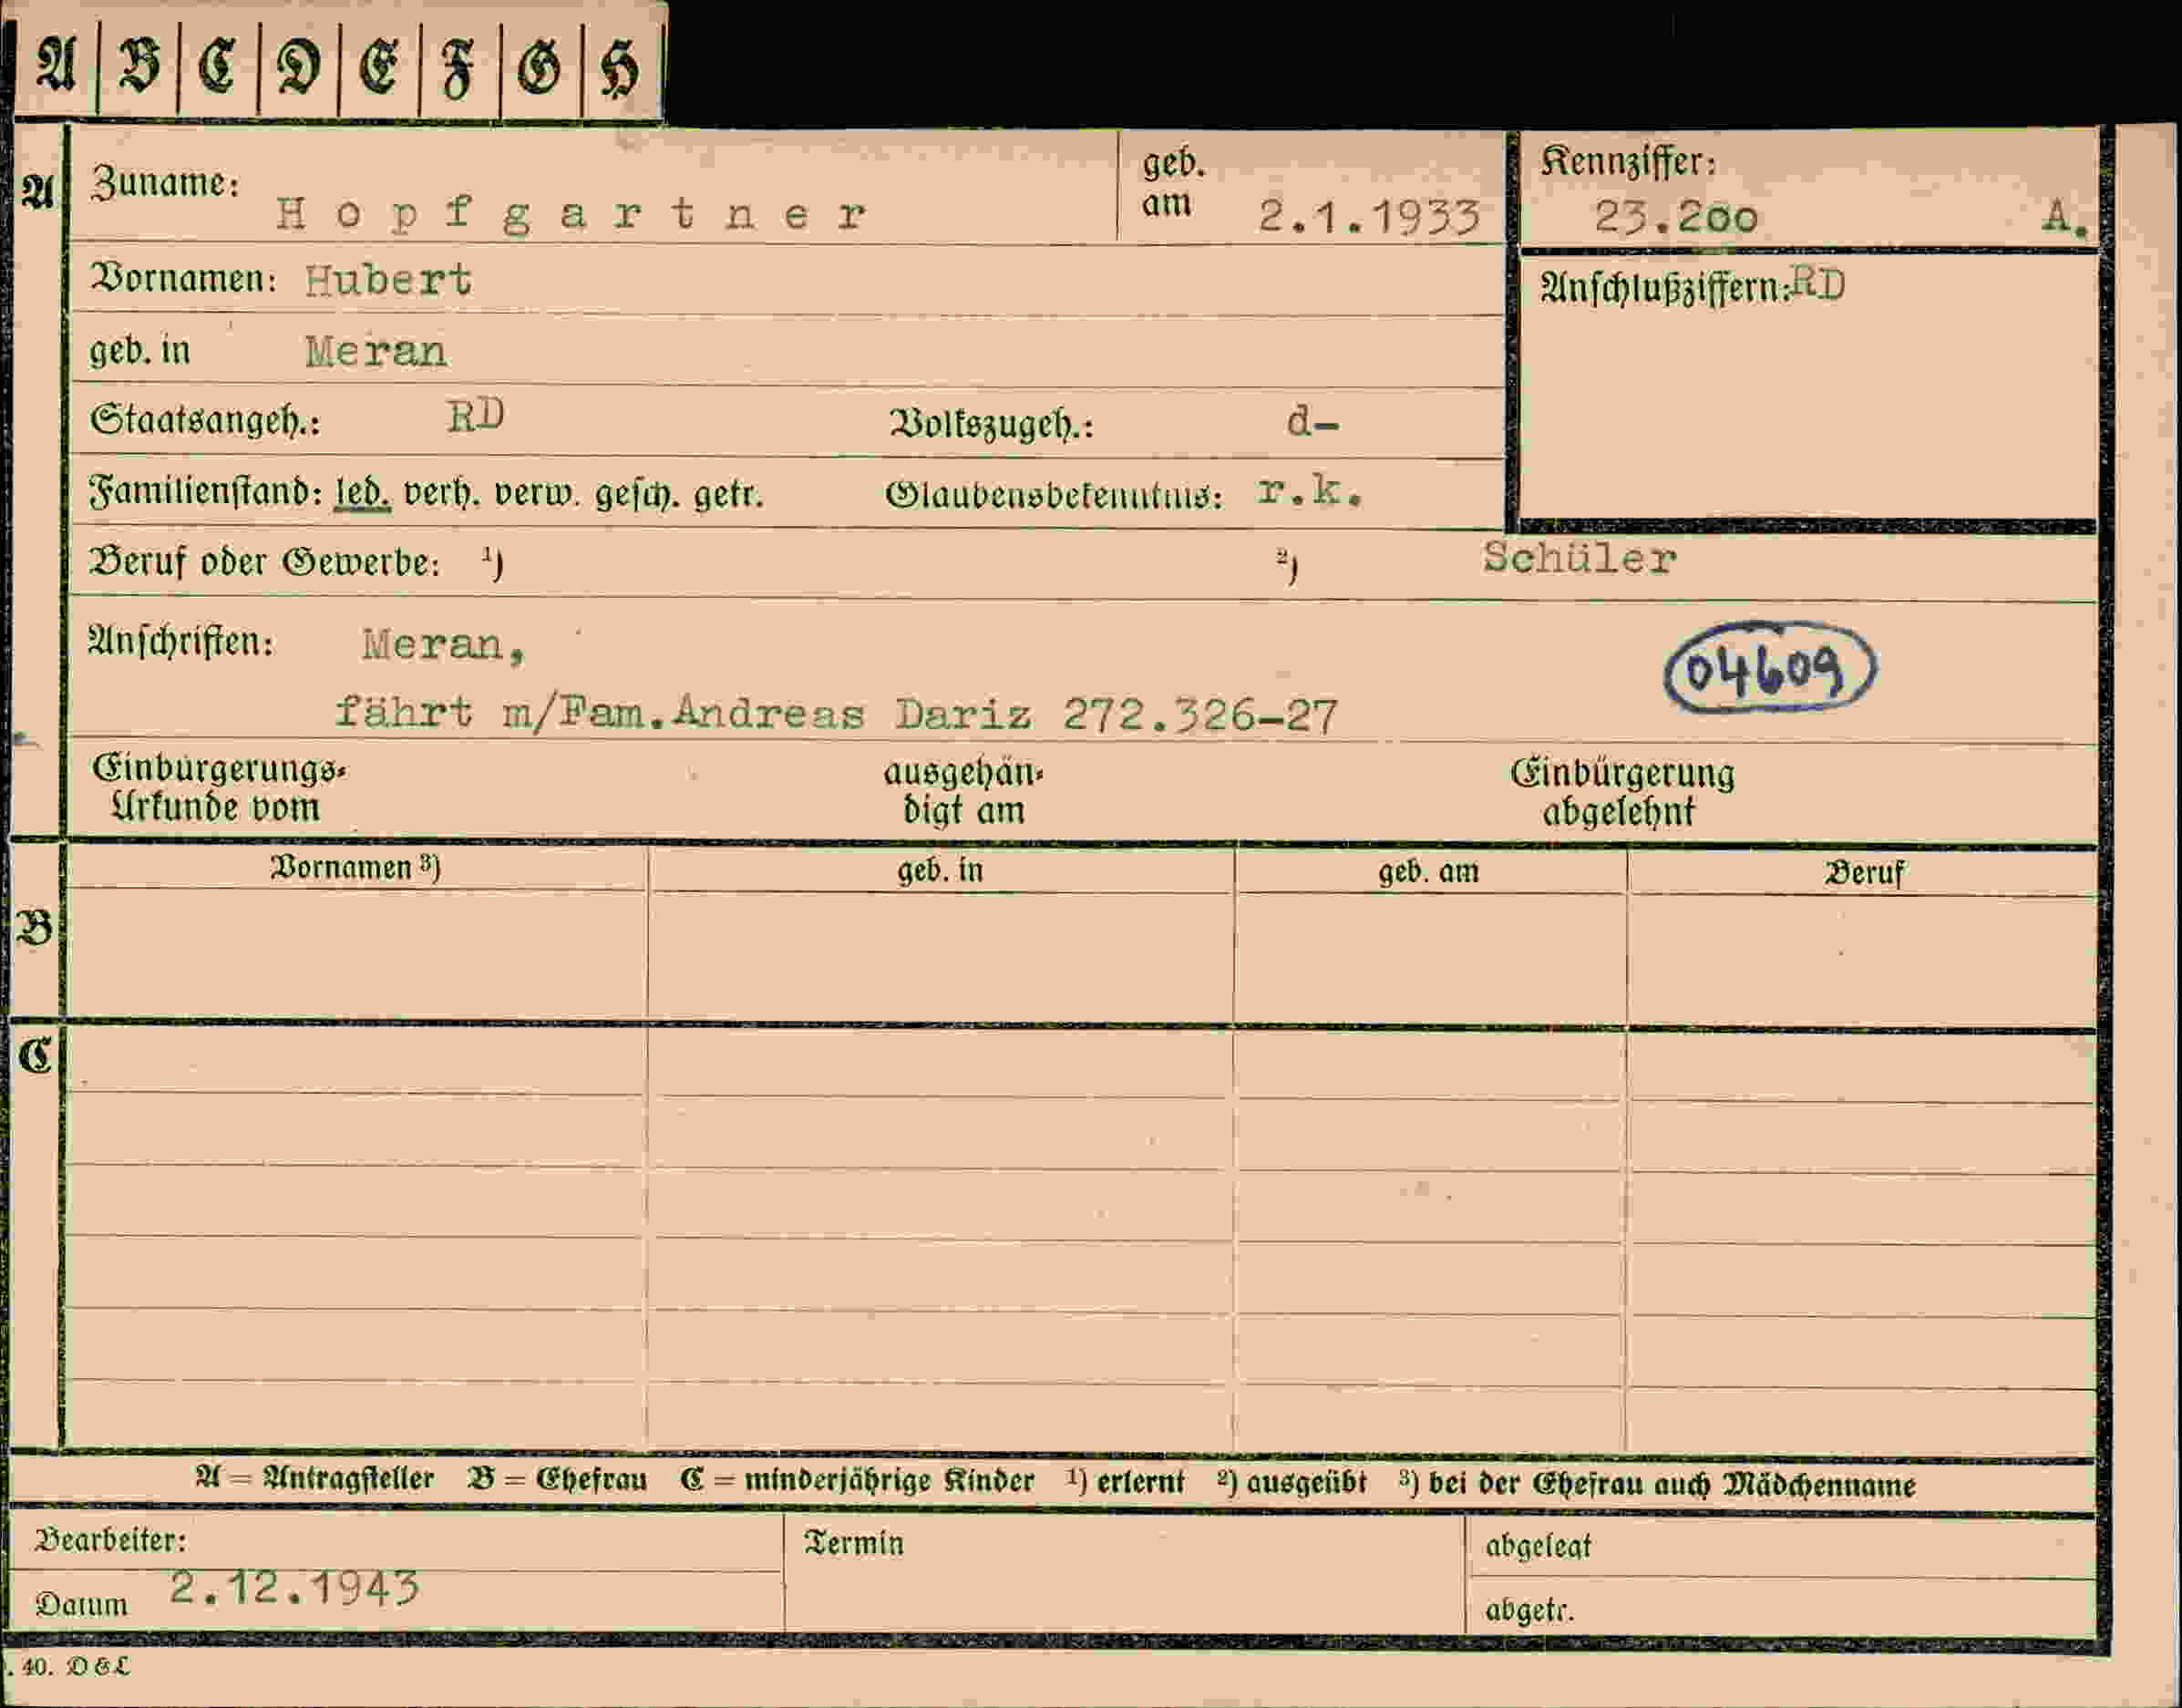 A B C D E F G H
A Zuname: Hopfgartner geb. am 2.1.1933 Kennziffer: 23.2oo A.
Vornamen: Hubert Anschlußziffern: RD
geb. in Meran
Staatsangeh.: RD Volkszugeh.: d-
Familienstand: led. verh. verw. gesch. getr. Glaubensbekenntnis: r.k.
Beruf oder Gewerbe: 1) 2) Schüler
Anschriften: Meran,
04609
fährt m/Fam.Andreas Dariz 272.326-27
Einbürgerungs- Urkunde vom ausgehän- digt am Einbürgerung abgelehnt
Vornamen 3) geb. in geb. am Beruf
B
C
A = Antragsteller B = Ehefrau C = minderjährige Kinder 1) erlernt 2) ausgeübt 3) bei der Ehefrau auch Mädchenname
Bearbeiter: Termin abgelegt
Datum 2.12.1943 abgetr.
. 40. D & L